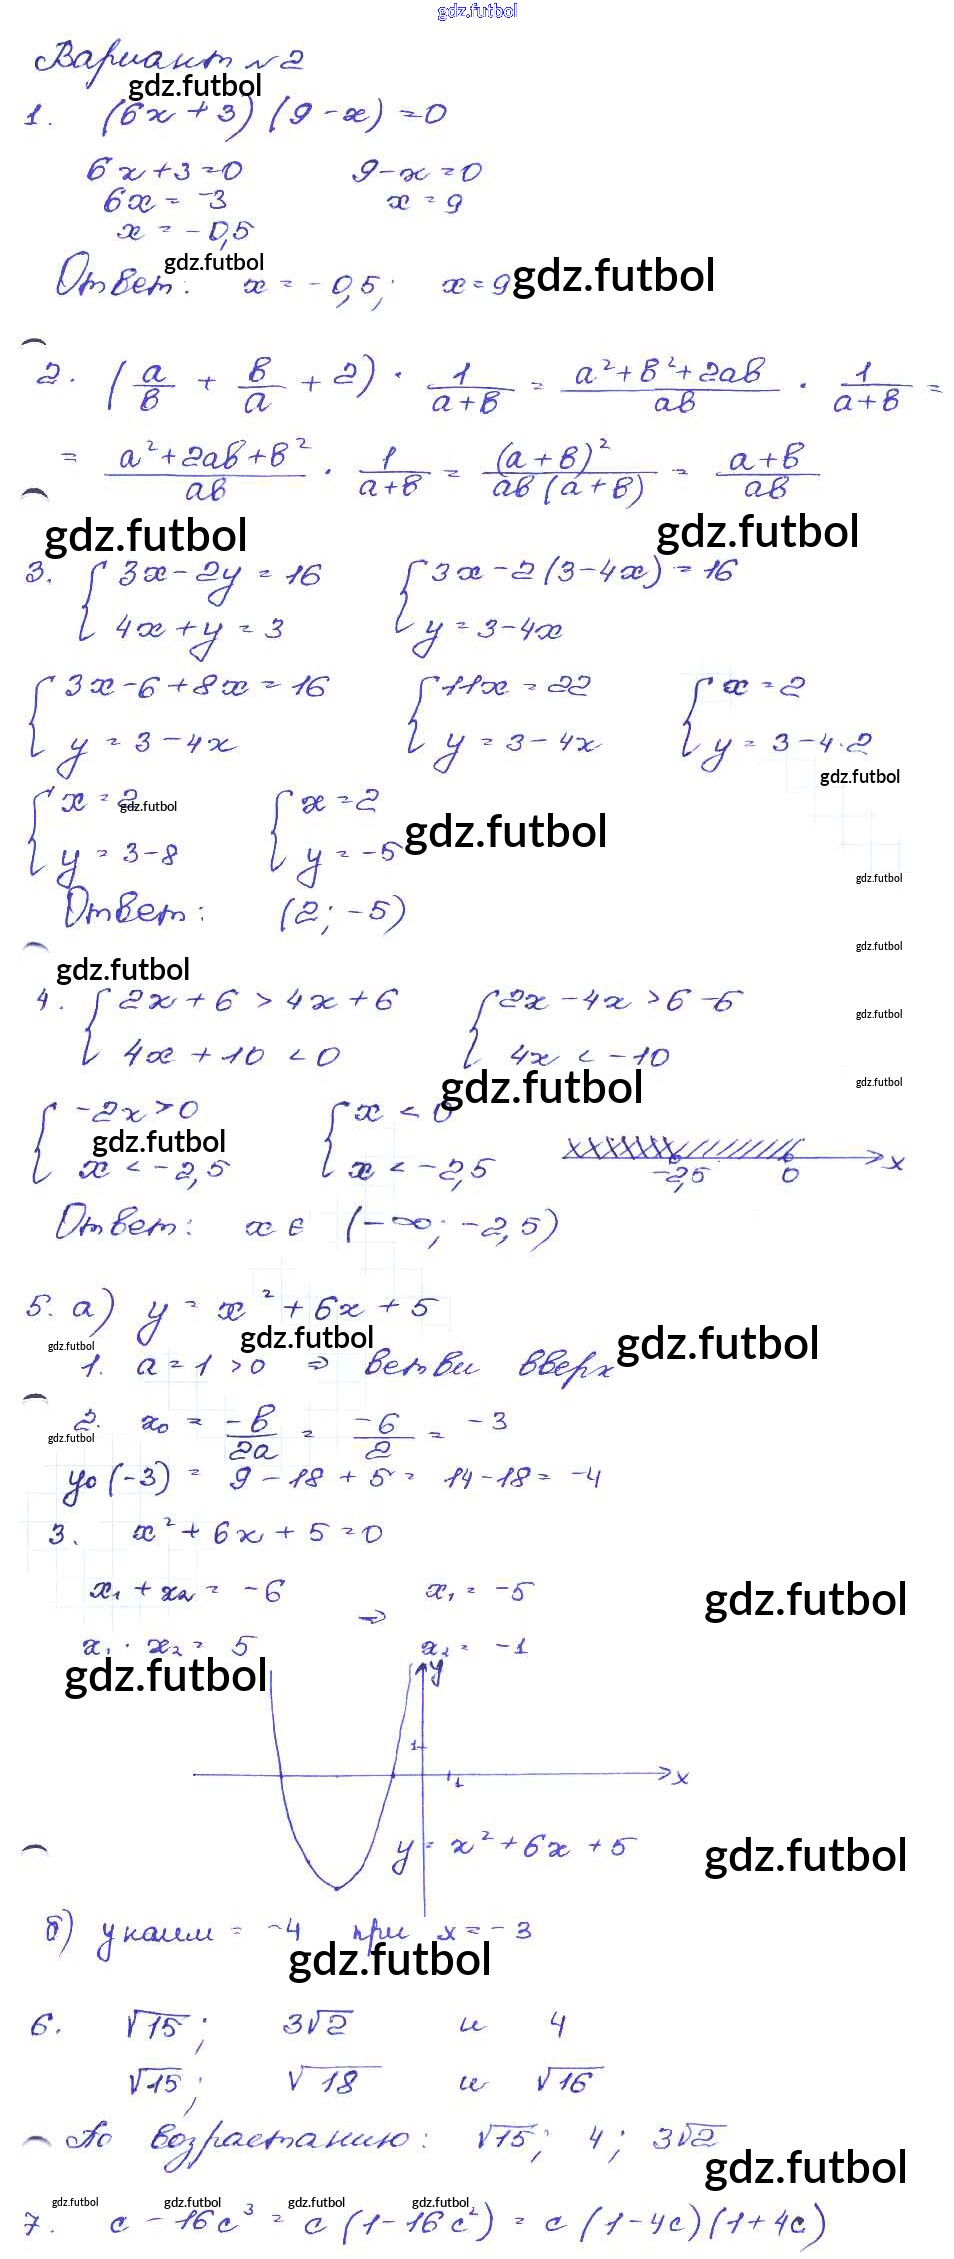 gdz.futbol
Вариант №2
gdz.futbol
1. (6x + 3)(9 - x) = 0
6x + 3 = 0    9 - x = 0
6x = -3    x = 9
x = -0,5
gdz.futbol
Ответ: x = -0,5; x = 9 gdz.futbol
2. (a/в + в/a + 2) · 1/(a+в) = (a² + в² + 2aв)/(aв) · 1/(a+в) =
= (a² + 2aв + в²)/(aв) · 1/(a+в) = (a+в)²/(aв(a+в)) = (a+в)/(aв)
gdz.futbol gdz.futbol
3. { 3x - 2y = 16    { 3x - 2(3 - 4x) = 16
4x + y = 3    y = 3 - 4x
{ 3x - 6 + 8x = 16    { 11x = 22    { x = 2
y = 3 - 4x    y = 3 - 4x    y = 3 - 4·2
gdz.futbol
{ x = 2 gdz.futbol    { x = 2
gdz.futbol
y = 3 - 8    y = -5
gdz.futbol
Ответ: (2; -5)
gdz.futbol
gdz.futbol
4. { 2x + 6 > 4x + 6    { 2x - 4x > 6 - 6
gdz.futbol
4x + 10 < 0    4x < -10
gdz.futbol gdz.futbol
{ -2x > 0    { x < 0
gdz.futbol
x < -2,5    x < -2,5    -2,5 0 x
Ответ: x ∈ (-∞; -2,5)
5. а) y = x² + 6x + 5
gdz.futbol gdz.futbol gdz.futbol
1. a = 1 > 0 ⇒ ветви вверх
2. x₀ = -в/2a = -6/2 = -3
gdz.futbol
y₀(-3) = 9 - 18 + 5 = 14 - 18 = -4
3. x² + 6x + 5 = 0
x₁ + x₂ = -6    x₁ = -5
gdz.futbol
⇒
x₁ · x₂ = 5    x₂ = -1
gdz.futbol
y
1
1 x
y = x² + 6x + 5
gdz.futbol
б) y наим = -4 при x = -3
gdz.futbol
6. √15; 3√2 и 4
√15; √18 и √16
По возрастанию: √15; 4; 3√2
gdz.futbol
gdz.futbol gdz.futbol gdz.futbol gdz.futbol
7. c - 16c³ = c(1 - 16c²) = c(1 - 4c)(1 + 4c)